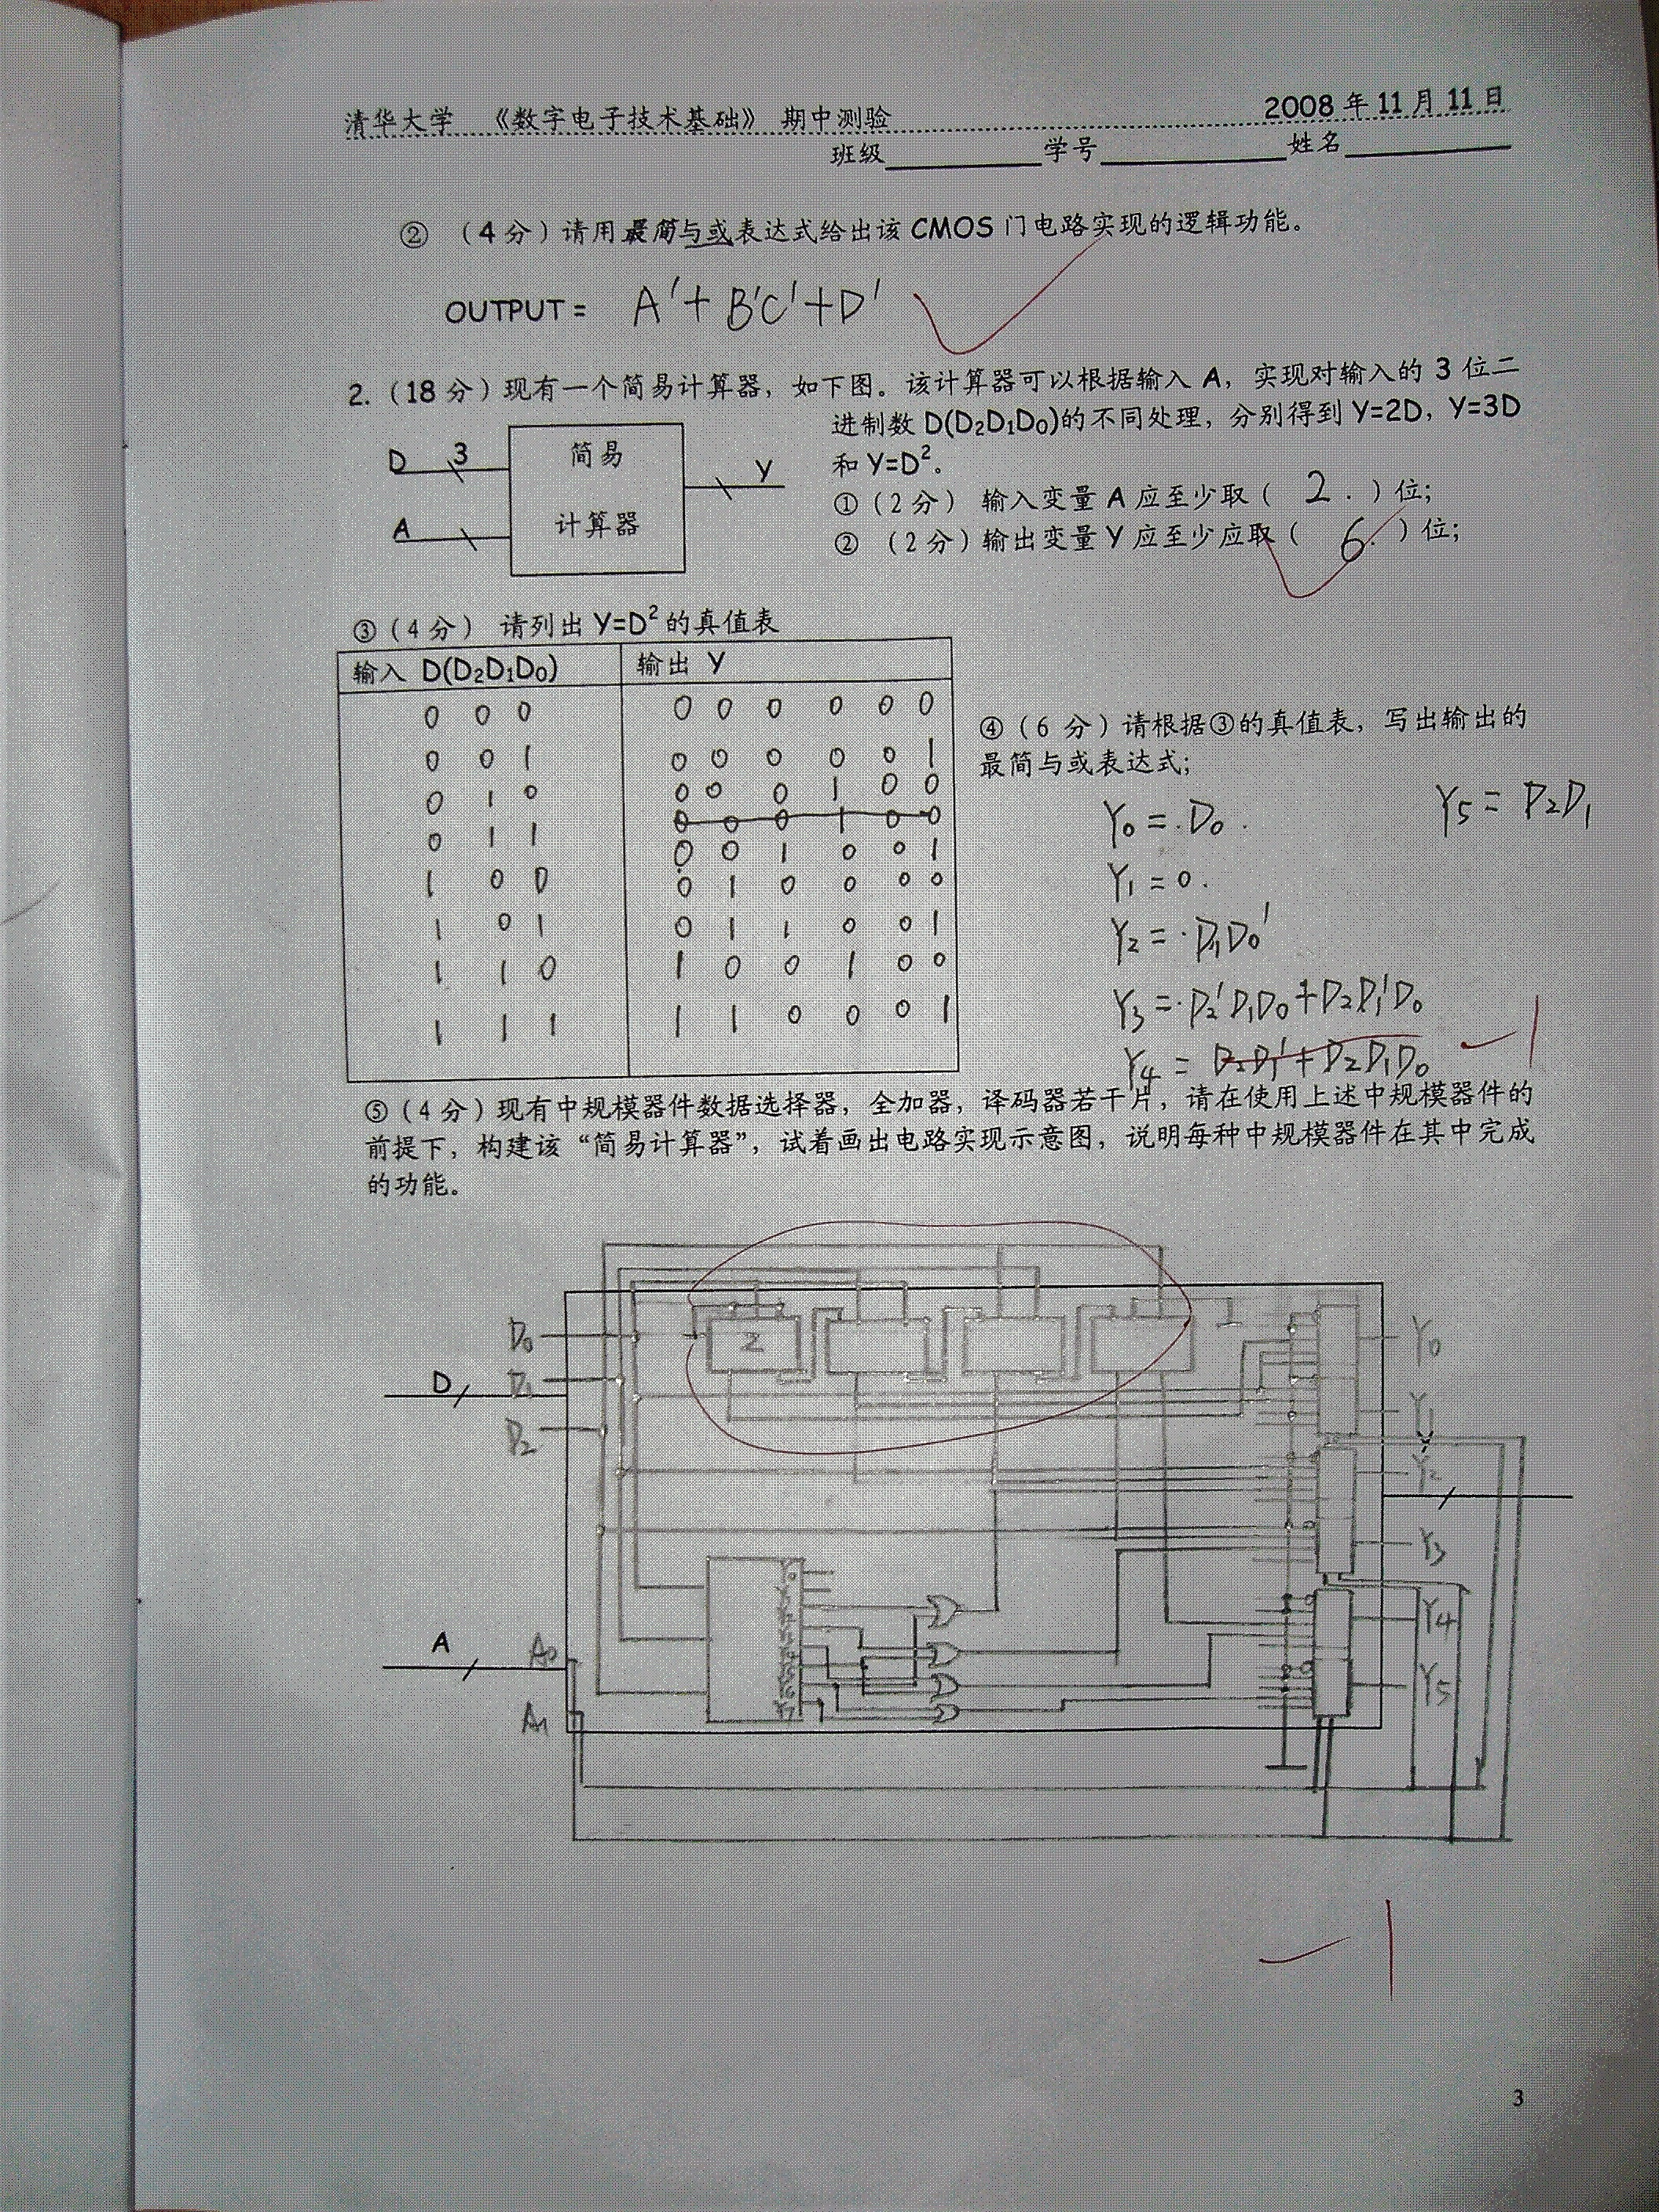 清华大学 《数字电子技术基础》 期中测验 2008 年 11 月 11 日
班级 学号 姓名
② （4 分）请用最简与或表达式给出该 CMOS 门电路实现的逻辑功能。
OUTPUT = A'+B'C'+D'
2.（18 分）现有一个简易计算器，如下图。该计算器可以根据输入 A，实现对输入的 3 位二
进制数 D(D₂D₁D₀)的不同处理，分别得到 Y=2D，Y=3D
和 Y=D²。
D 3 简易 Y
A 计算器
①（2 分） 输入变量 A 应至少取（ 2 . ）位；
② （2 分）输出变量 Y 应至少应取（ 6. ）位；
③（4 分） 请列出 Y=D² 的真值表
输入 D(D₂D₁D₀) 输出 Y
0 0 0 0 0 0 0 0 0
0 0 1 0 0 0 0 0 1
0 1 0 0 0 0 1 0 0
0 0 0 1 0 0
0 1 1 0 0 1 0 0 1
1 0 0 0 1 0 0 0 0
1 0 1 0 1 1 0 0 1
1 1 0 1 0 0 1 0 0
1 1 1 1 1 0 0 0 1
④（6 分）请根据③的真值表，写出输出的
最简与或表达式；
Y₀ = D₀ .
Y₁ = 0 .
Y₂ = D₁D₀'
Y₃ = D₂'D₁D₀+D₂D₁'D₀
Y₄ = D₂D₁'+D₂D₁D₀
Y₅ = D₂D₁
-1
⑤（4 分）现有中规模器件数据选择器，全加器，译码器若干片，请在使用上述中规模器件的
前提下，构建该“简易计算器”，试着画出电路实现示意图，说明每种中规模器件在其中完成
的功能。
D₀
D₁
D₂
D
Σ
A
A₀
A₁
Y₀
Y₁
Y₂
Y₃
Y₄
Y₅
-1
3